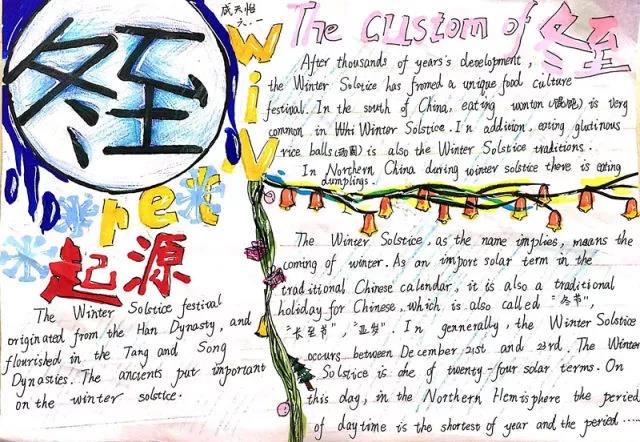 冬至
成天怡
六.一
winter
The custom of 冬至
After thousands of years's development,
the Winter Solstice has fromed a unique food culture
festival. In the south of China, eating wonton (馄饨) is very
common in Whi Winter Solstice. In addition, eating glutinous
rice balls (汤圆) is also the Winter Solstice traditions.
In Northern China during winter solstice there is eating
dumplings.
起源
The Winter Solstice festival
originated from the Han Dynasty, and
flourished in the Tang and Song
Dynasties. The ancients put important
on the winter solstice.
The Winter Solstice, as the name implies, means the
coming of winter. As an import solar term in the
traditional Chinese calendar, it is also a traditional
holiday for Chinese, which is also called "冬节",
"长至节", "亚岁". In gennerally, the Winter Solstice
occurs between December 21st and 23rd. The Winter
Solstice is one of twenty-four solar terms. On
this day, in the Northern Hemisphere the period
of daytime is the shortest of year and the period ....